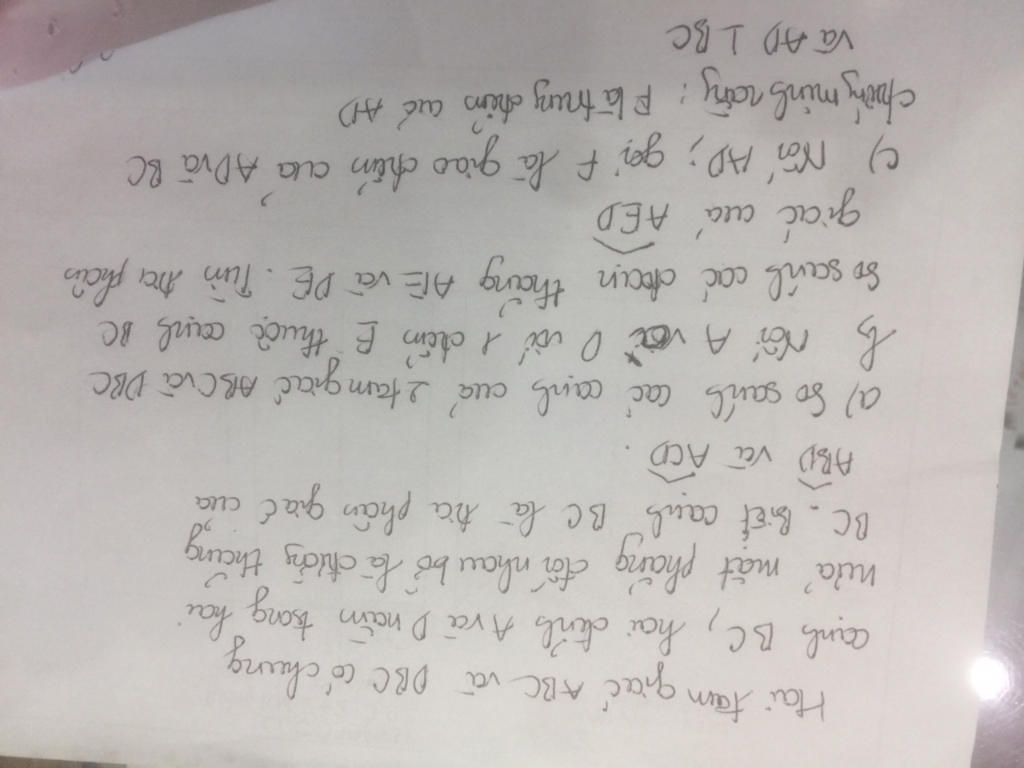 Hai tam giác ABC và DBC có chung
cạnh BC, hai đỉnh A và D nằm trong hai
nửa mặt phẳng đối nhau bờ là đường thẳng
BC. Biết cạnh BC là tia phân giác của
ABD và ACD.
a) So sánh các cạnh của 2 tam giác ABC và DBC
b Nối A và D với 1 điểm E thuộc cạnh BC
So sánh các đoạn thẳng AE và DE. Tìm tia phân
giác của AED
c) Nối AD; gọi F là giao điểm của AD và BC
chứng minh rằng: F là trung điểm của AD
và AD ⊥ BC